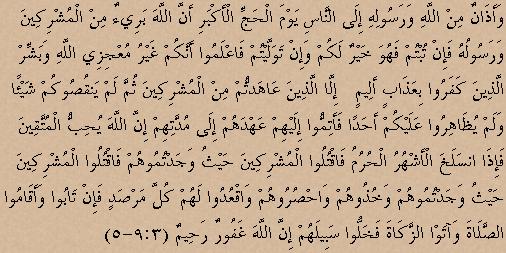 وَأَذَانٌ مِنْ اللَّهِ وَرَسُولِهِ إِلَى النَّاسِ يَوْمَ الْحَجِّ الْأَكْبَرِ أَنَّ اللَّهَ بَرِيءٌ مِنْ الْمُشْرِكِينَ
وَرَسُولُهُ فَإِنْ تُبْتُمْ فَهُوَ خَيْرٌ لَكُمْ وَإِنْ تَوَلَّيْتُمْ فَاعْلَمُوا أَنَّكُمْ غَيْرُ مُعْجِزِي اللَّهِ وَبَشِّرْ
الَّذِينَ كَفَرُوا بِعَذَابٍ أَلِيمٍ إِلَّا الَّذِينَ عَاهَدتُّمْ مِنْ الْمُشْرِكِينَ ثُمَّ لَمْ يَنقُصُوكُمْ شَيْئًا
وَلَمْ يُظَاهِرُوا عَلَيْكُمْ أَحَدًا فَأَتِمُّوا إِلَيْهِمْ عَهْدَهُمْ إِلَى مُدَّتِهِمْ إِنَّ اللَّهَ يُحِبُّ الْمُتَّقِينَ
فَإِذَا انسَلَخَ الْأَشْهُرُ الْحُرُمُ فَاقْتُلُوا الْمُشْرِكِينَ حَيْثُ وَجَدْتُمُوهُمْ فَاقْتُلُوا الْمُشْرِكِينَ
حَيْثُ وَجَدْتُمُوهُمْ وَخُذُوهُمْ وَاحْصُرُوهُمْ وَاقْعُدُوا لَهُمْ كُلَّ مَرْصَدٍ فَإِنْ تَابُوا وَأَقَامُوا
الصَّلَاةَ وَآتَوْا الزَّكَاةَ فَخَلُّوا سَبِيلَهُمْ إِنَّ اللَّهَ غَفُورٌ رَحِيمٌ (٩:٣-٥)